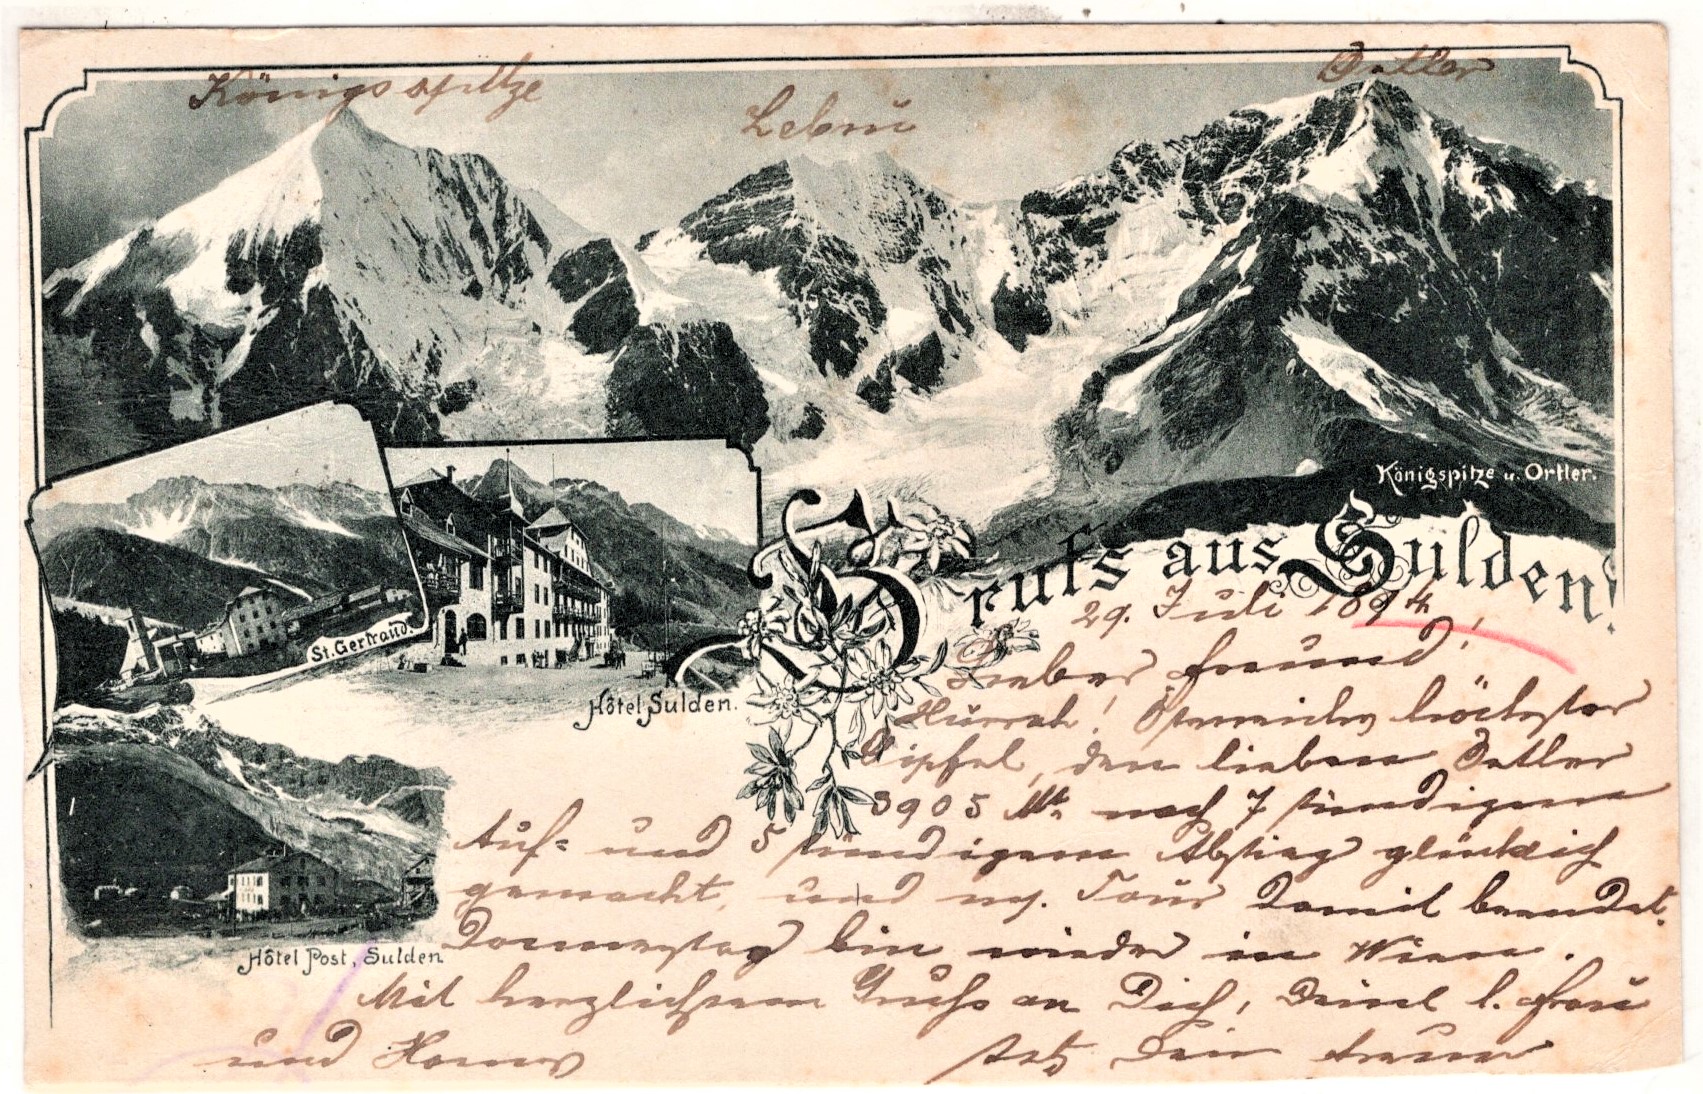 Königsspitze
Zebru
Ortler
Königspitze u. Ortler.
Gruss aus Sulden!
St. Gertraud.
Hôtel Sulden.
Hôtel Post, Sulden
29. Juli 189
Lieber Freund!
Hurrah! Österreichs höchster
Gipfel, den lieben Ortler
3905 Mt. nach 7 stündigem
Auf- und 5 stündigem Abstieg glücklich
gemacht, und m. Tour damit beendet.
Donnerstag bin wieder in Wien.
Mit herzlichstem Gruss an Dich, Deine l. Frau
und
stets Dein treuer